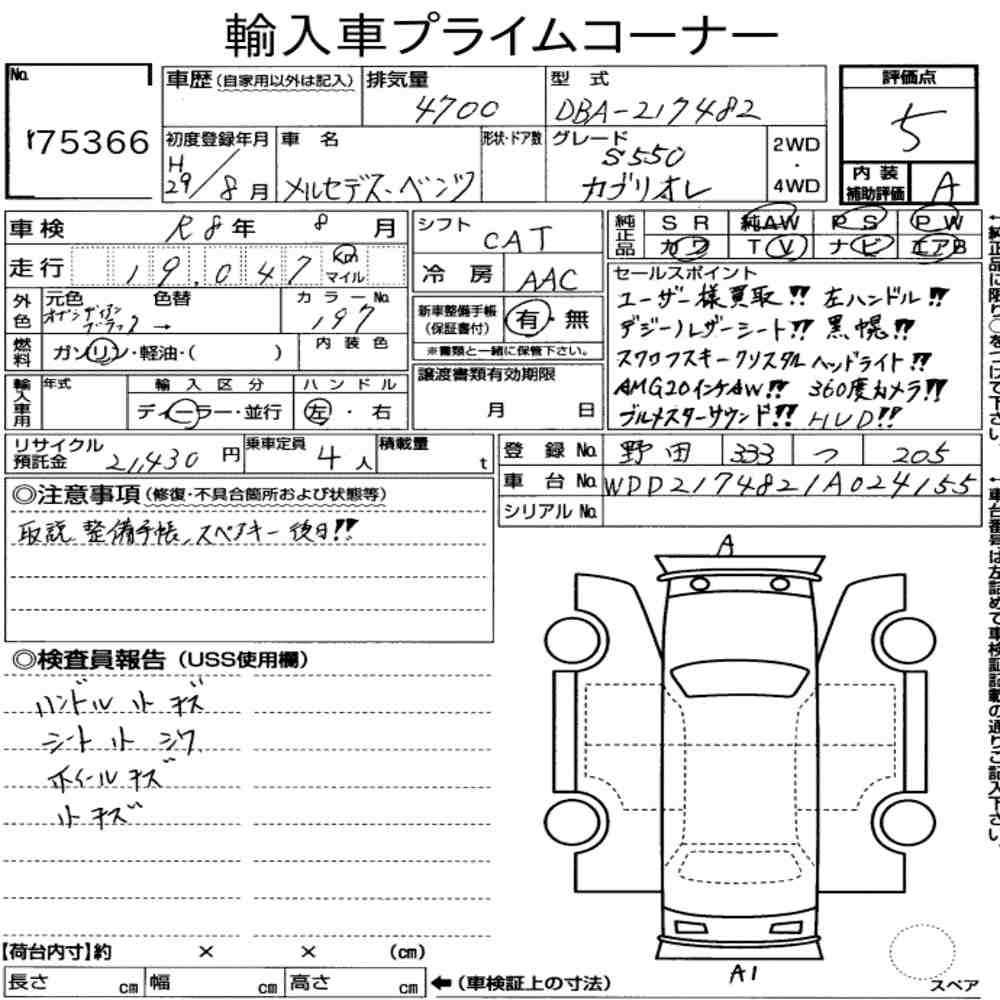 輸入車プライムコーナー
No. 75366
車歴(自家用以外は記入)
排気量 4700
型式 DBA-217482
評価点 5
初度登録年月 H29/8月
車名 メルセデス・ベンツ
形状・ドア数
グレード S550 カブリオレ
2WD・4WD
内装補助評価 A
車検 R8年 8月
シフト CAT
純正品 SR 純AW PS PW
カワ TV ナビ エアB
走行 19,047 Km マイル
冷房 AAC
セールスポイント
ユーザー様買取!! 左ハンドル!!
デジーノレザーシート!! 黒幌!!
スワロフスキークリスタルヘッドライト!!
AMG20インチAW!! 360度カメラ!!
ブルメスターサウンド!! HUD!!
外色 元色 色替 カラーNo. 197
オブシディアンブラック →
新車整備手帳(保証書付) 有・無
※書類と一緒に保管下さい。
燃料 ガソリン・軽油・( )
内装色
輸入車用 年式 輸入区分 ハンドル
ディーラー・並行 左・右
譲渡書類有効期限
月 日
リサイクル預託金 21,430円
乗車定員 4人
積載量 t
登録No. 野田 333 つ 205
車台No. WDD2174821A024155
シリアルNo.
◎注意事項(修復・不具合箇所および状態等)
取説、整備手帳、スペアキー後日!!
◎検査員報告(USS使用欄)
ハンドル小キズ
シート小シワ
ホイールキズ
小キズ
A
A1
スペア
【荷台内寸】約 × × (cm)
長さ cm 幅 cm 高さ cm ←(車検証上の寸法)
←純正品に限り○をつけて下さい。
←車台番号は左詰めで車検証記載の通りご記入下さい。